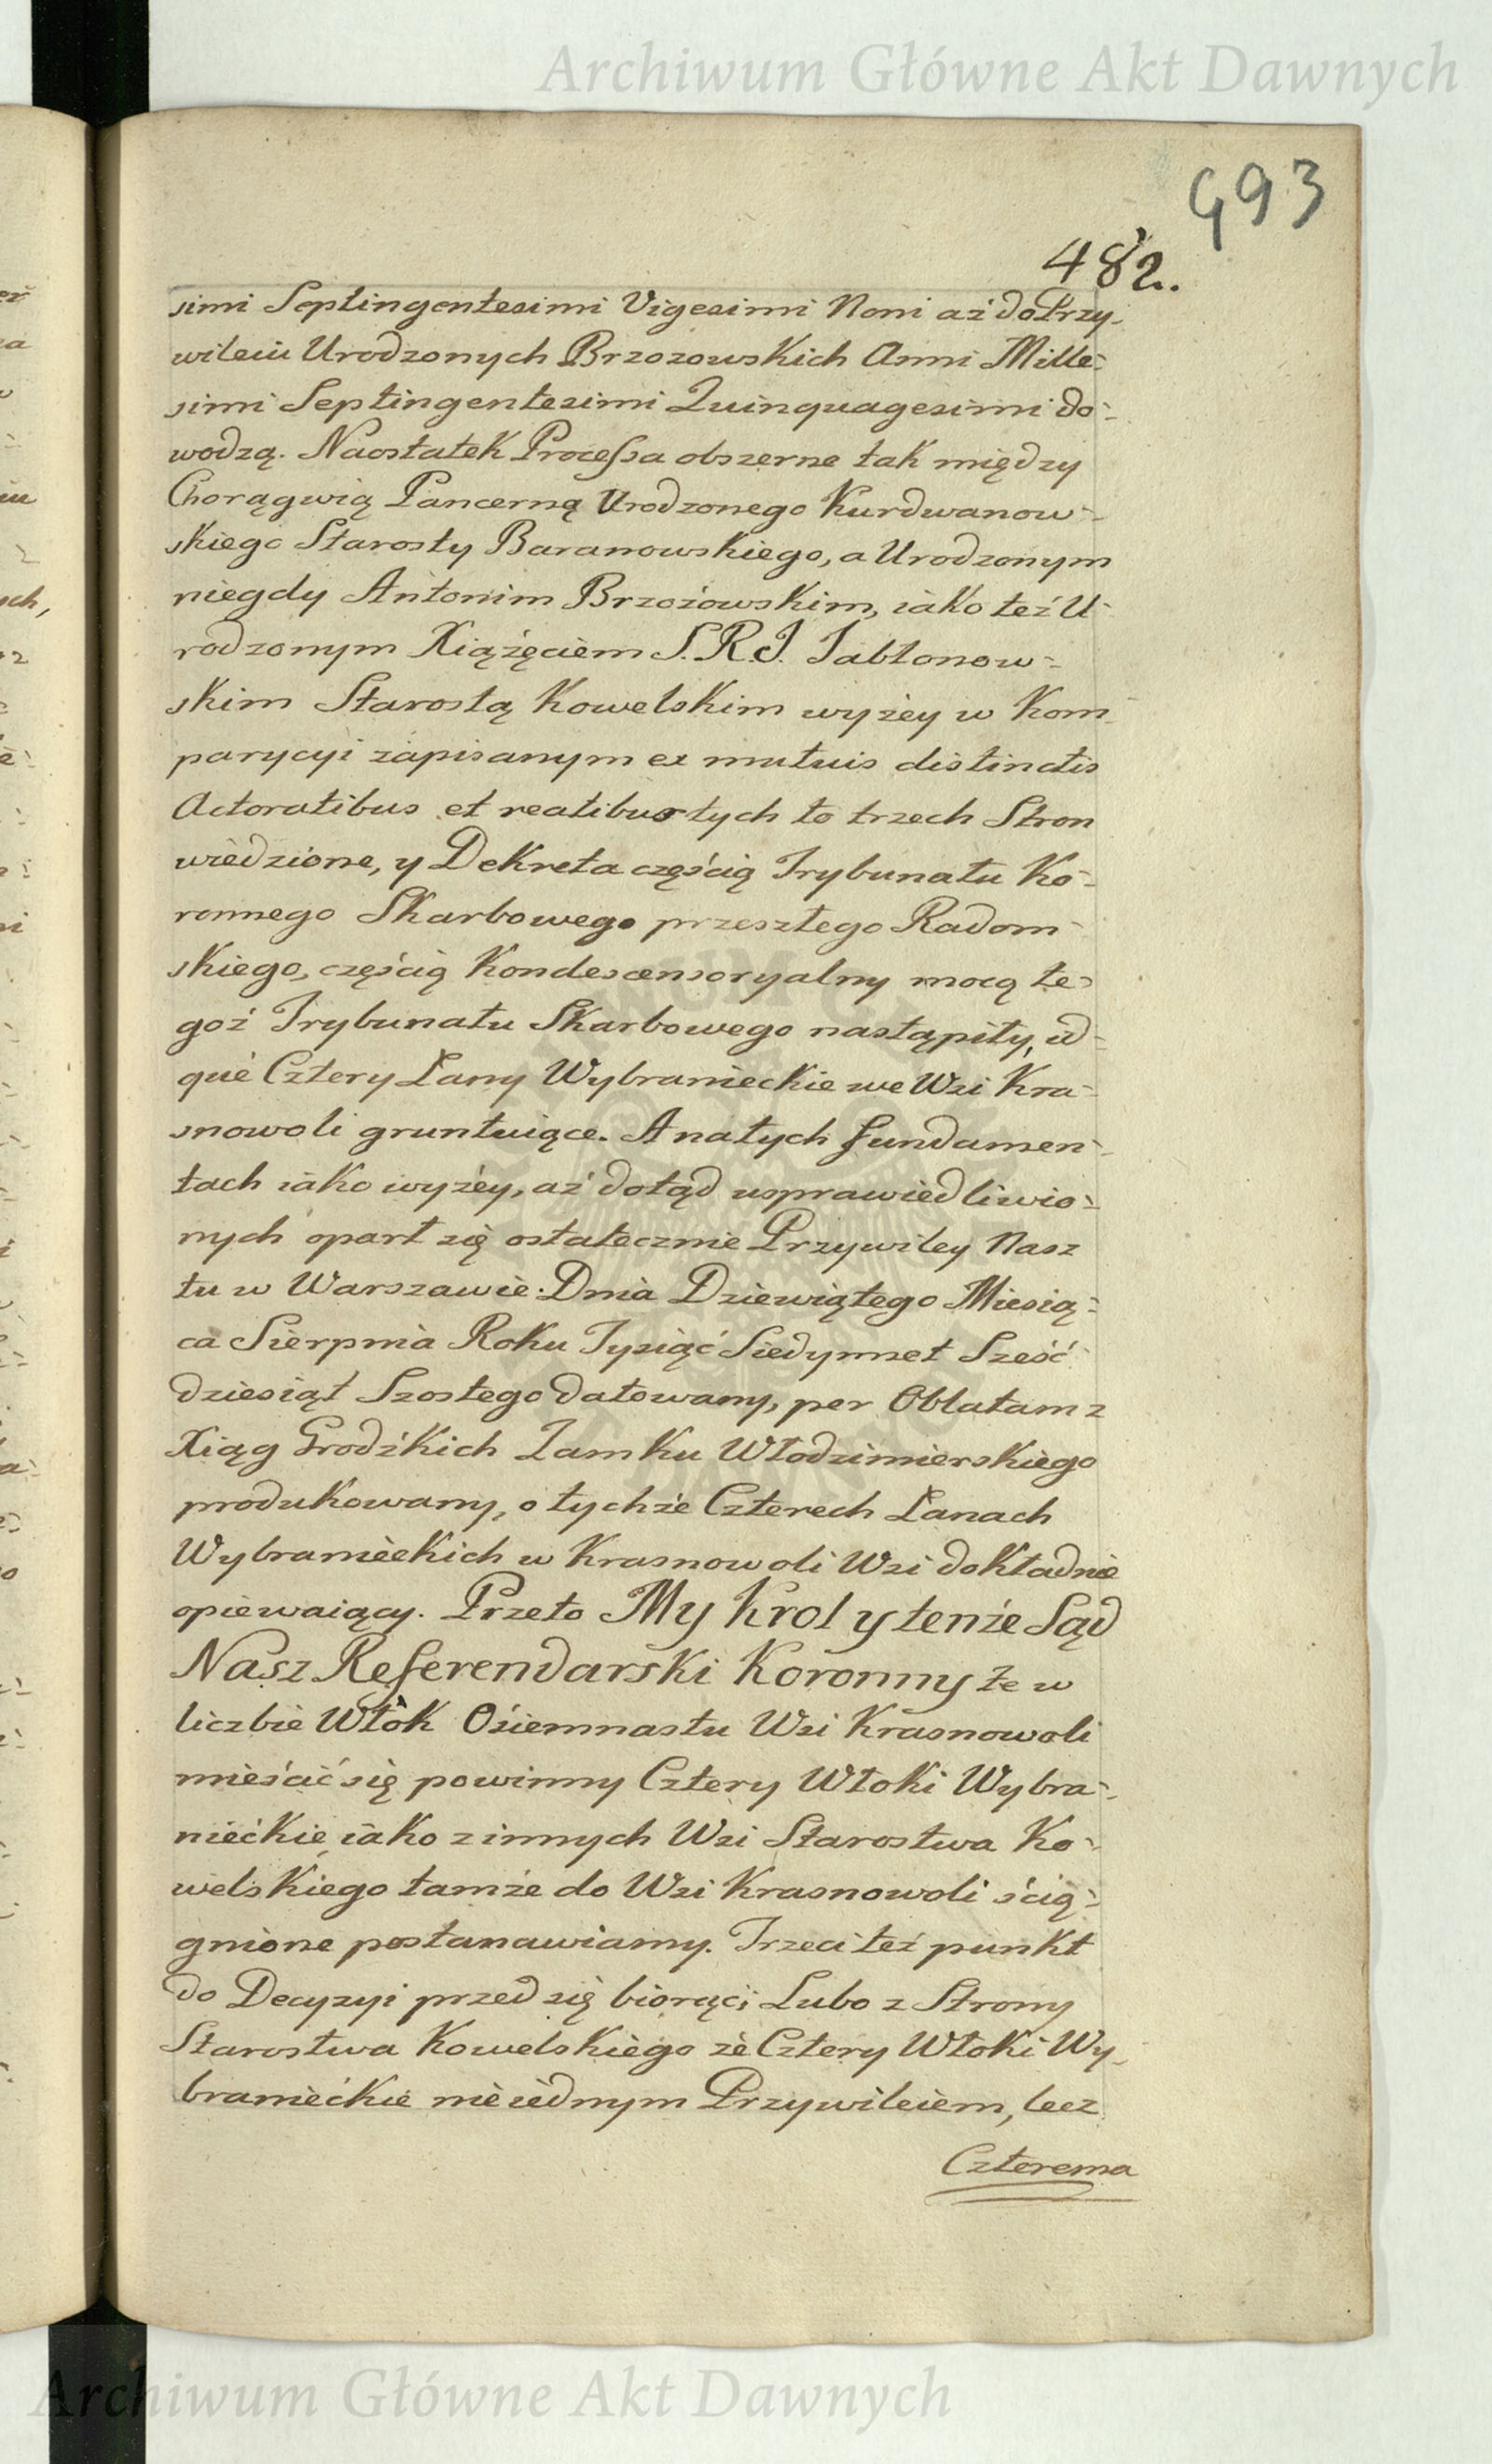 Archiwum Główne Akt Dawnych
493
482.
simi Septingentesimi Vigesimi Noni aż do Przy-
wileiu Urodzonych Brzozowskich Anni Mille-
simi Septingentesimi Quinquagesimi do-
wodzą. Naostatek Processa obszerne tak między
Chorągwią Pancerną Urodzonego Kurdwanow-
skiego Starosty Baranowskiego, a Urodzonym
niegdy Antonim Brzozowskim, iako też U-
rodzonym Xiążęciem S.R.J. Jabłonow-
skim Starostą Kowelskim wyżey w Kom-
parycyi zapisanym ex mutuis distinctis
Actoratibus et reatibus tych to trzech Stron
wiedzione, y Dekreta częścią Trybunału Ko-
ronnego Skarbowego przeszłego Radom-
skiego, częścią Kondescensoryalny mocą te-
goż Trybunału Skarbowego nastąpiły, id-
que Cztery Łany Wybranieckie we Wsi Kra-
snowoli gruntuiące. A na tych fundamen-
tach iako wyżey, aż dotąd usprawiedliwio-
nych oparł się ostatecznie Przywiley Nasz
tu w Warszawie Dnia Dziewiątego Miesią-
ca Sierpnia Roku Tysiąć Siedymset Sześć-
dziesiąt Szostego datowany, per Oblatam z
Xiąg Grodźkich Zamku Włodzimierskiego
produkowany, o tychże Czterech Łanach
Wybranieckich w Krasnowoli Wsi dokładnie
opiewaiący. Przeto My Krol y tenże Sąd
Nasz Referendarski Koronny że w
liczbie Włók Ośiemnastu Wsi Krasnowoli
mieśćić się powinny Cztery Włoki Wybra-
niećkie, iako z innych Wsi Starostwa Ko-
welskiego tamże do Wsi Krasnowoli ścią-
gnione postanawiamy. Trzeci też punkt
do Decyzyi przed się biorąc; Lubo z Strony
Starostwa Kowelskiego że Cztery Włoki Wy-
braniećkie nie iednym Przywileiem, lecz
Czterema
Archiwum Główne Akt Dawnych